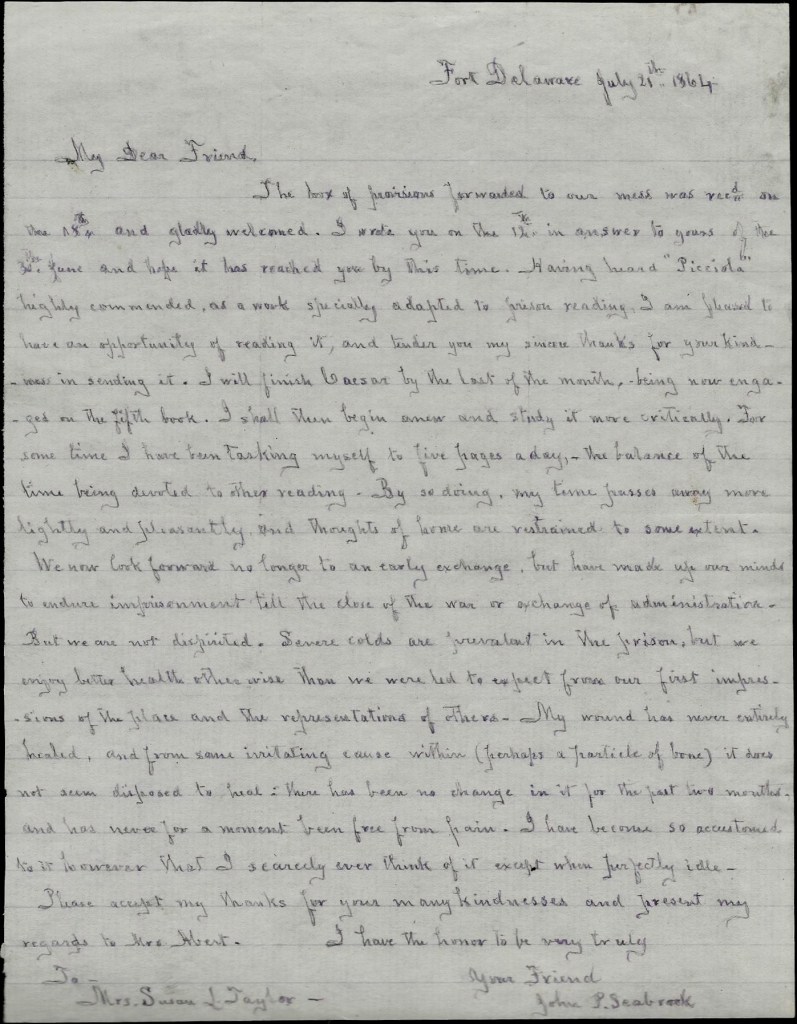 Fort Delaware July 21th 1864
My Dear Friend,
The box of provisions forwarded to our mess was recd on
the 18th and gladly welcomed. I wrote you on the 12th in answer to yours of the
30th June and hope it has reached you by this time. Having heard "Picciola"
highly commended, as a work specially adapted to prison reading, I am pleased to
have an opportunity of reading it, and tender you my sincere thanks for your kind-
-ness in sending it. I will finish Caesar by the last of the month, - being now enga-
-ges on the fifth book. I shall then begin anew and study it more critically. For
some time I have been tasking myself to five pages a day, - the balance of the
time being devoted to other reading - By so doing, my time passes away more
lightly and pleasantly, and thoughts of home are restrained to some extent.
We now look forward no longer to an early exchange, but have made up our minds
to endure imprisonment till the close of the war or exchange of administration -
But we are not dispirited. Severe colds are prevalent in the prison, but we
enjoy better health otherwise than we were led to expect from our first impres-
-sions of the place and the representations of others - My wound has never entirely
healed, and from some irritating cause within (perhaps a particle of bone) it does
not seem disposed to heal: there has been no change in it for the past two months -
and has never for a moment been free from pain. I have become so accustomed
to it however that I scarcely ever think of it except when perfectly idle -
Please accept my thanks for your many kindnesses and present my
regards to Mrs Abert. I have the honor to be very truly
Your Friend
John P. Seabrook
To -
Mrs. Susan L. Taylor -